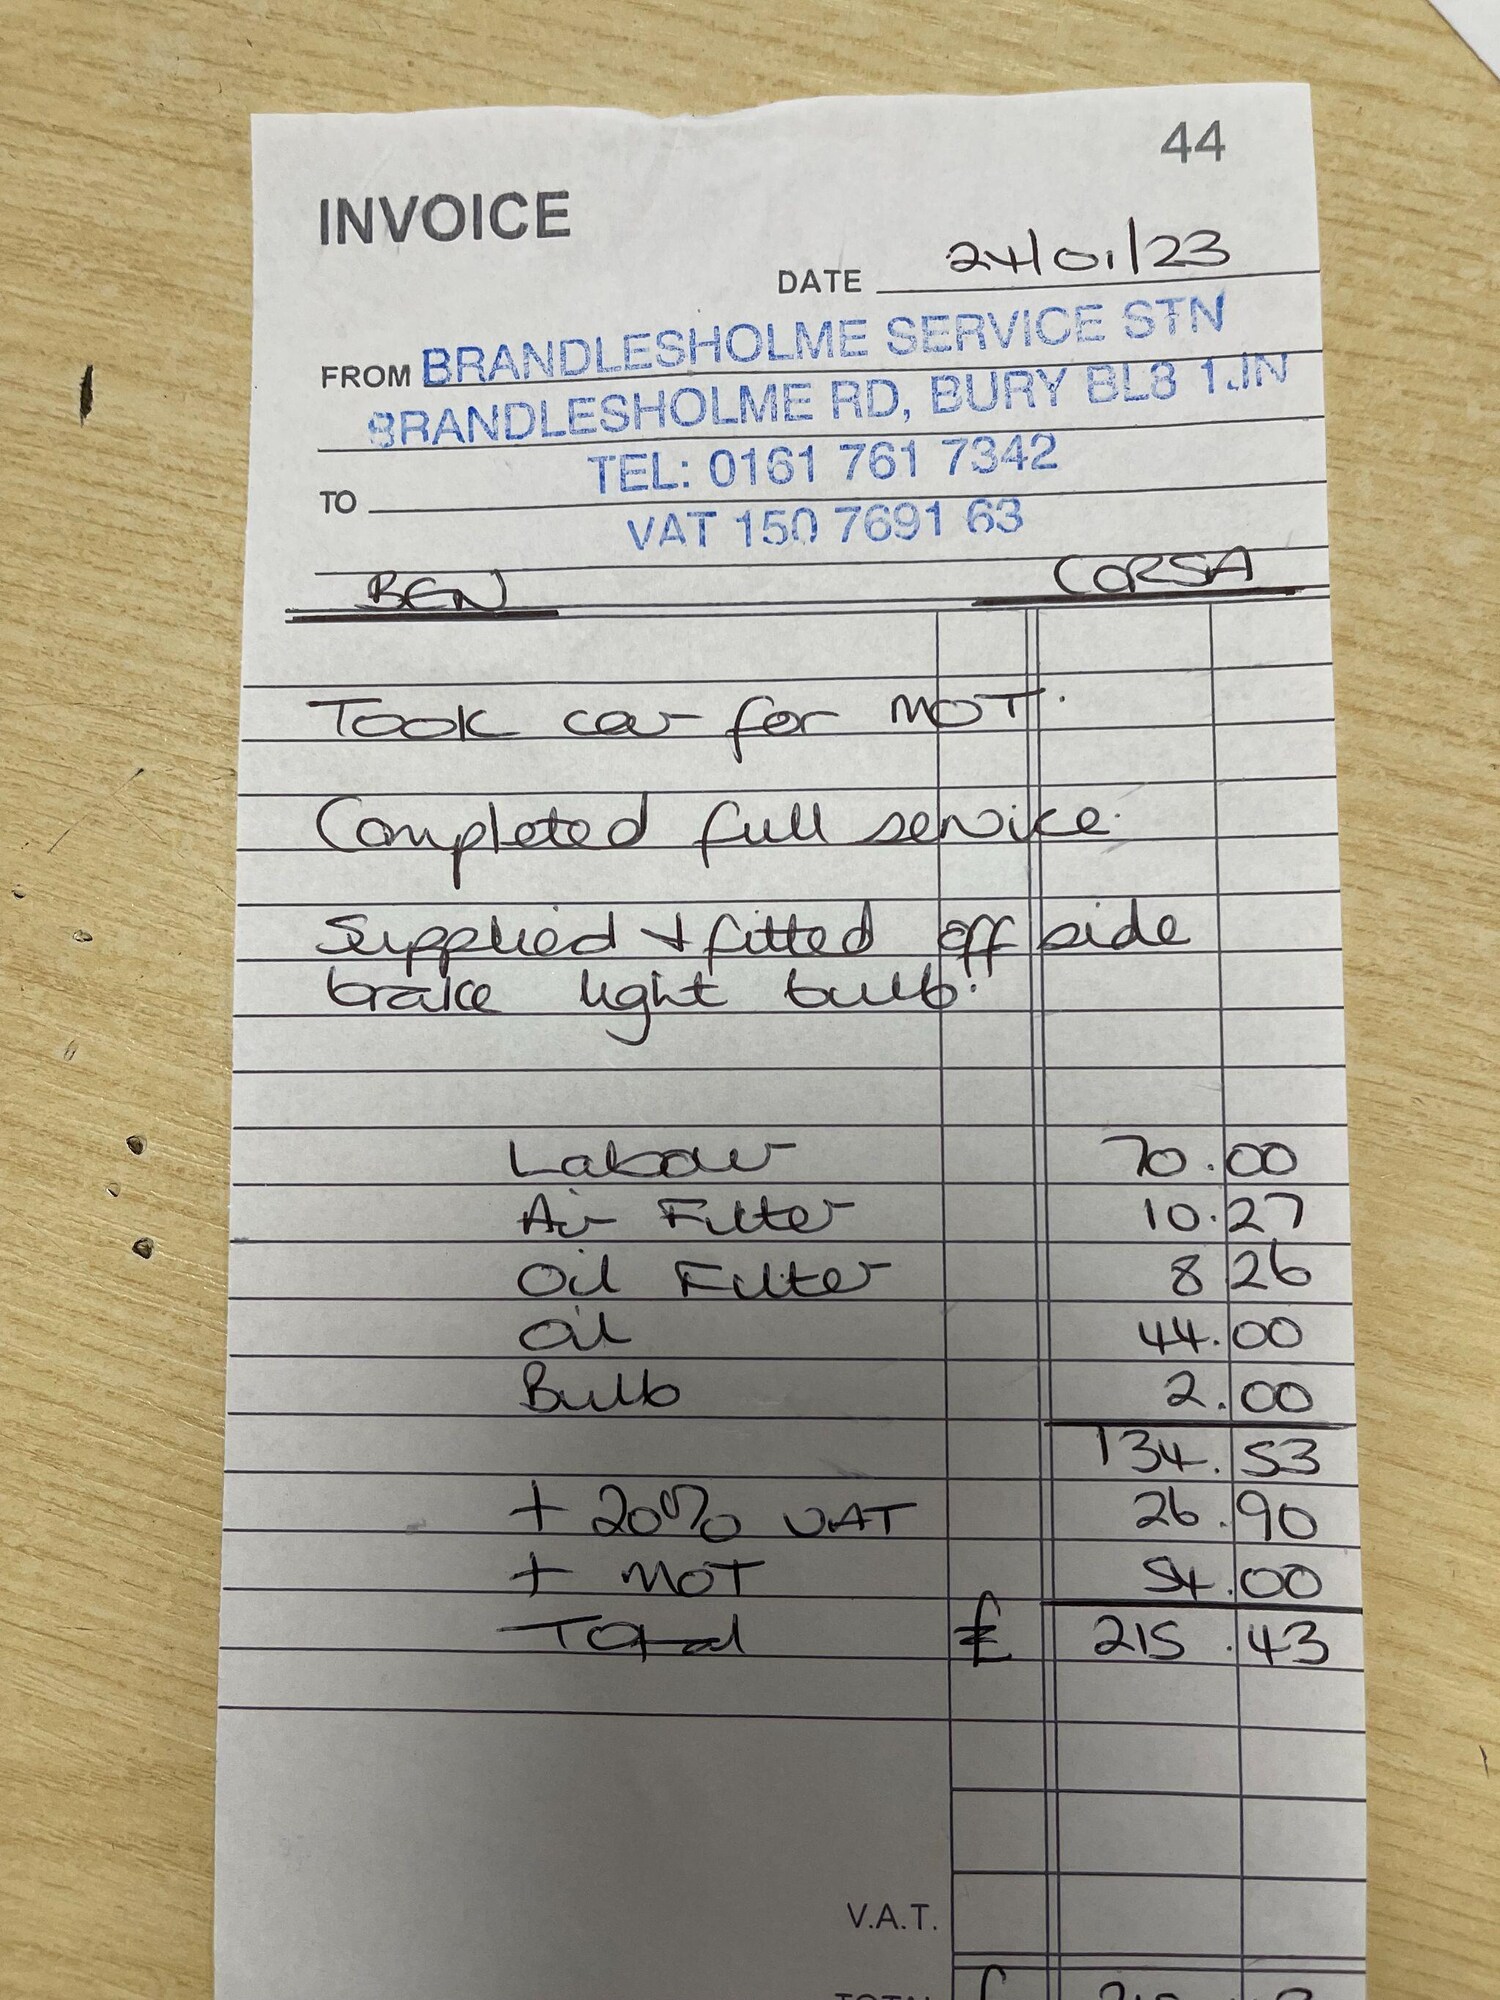 44
INVOICE
DATE 24/01/23
FROM BRANDLESHOLME SERVICE STN
BRANDLESHOLME RD, BURY BL8 1JN
TEL: 0161 761 7342
TO
VAT 150 7691 63
BEN CORSA
Took car for MOT.
Completed full service.
Supplied + fitted off side
brake light bulb.
Labour 70.00
Air Filter 10.27
Oil Filter 8 26
Oil 44.00
Bulb 2.00
134.53
+ 20% VAT 26.90
+ MOT 54.00
Total £ 215.43
V.A.T.
TOTAL £